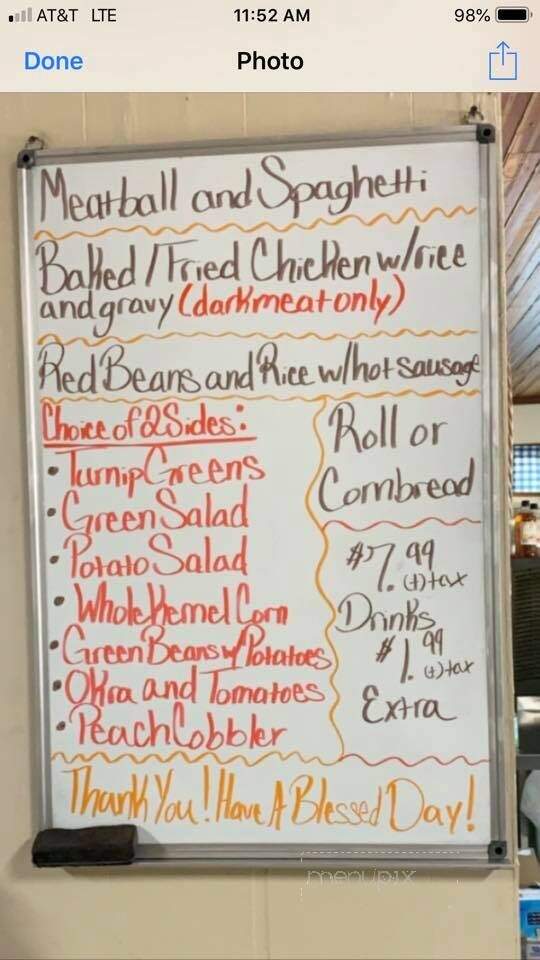 AT&T LTE 11:52 AM 98%
Done Photo
Meatball and Spaghetti
Baked/Fried Chicken w/rice
and gravy (dark meat only)
Red Beans and Rice w/hot sausage
Choice of 2 Sides:
• Turnip Greens
• Green Salad
• Potato Salad
• Whole Kernel Corn
• Green Beans w/Potatoes
• Okra and Tomatoes
• Peach Cobbler
Roll or
Cornbread
$7.99
(+) tax
Drinks
$1.99
(+) tax
Extra
Thank You! Have A Blessed Day!
menupix